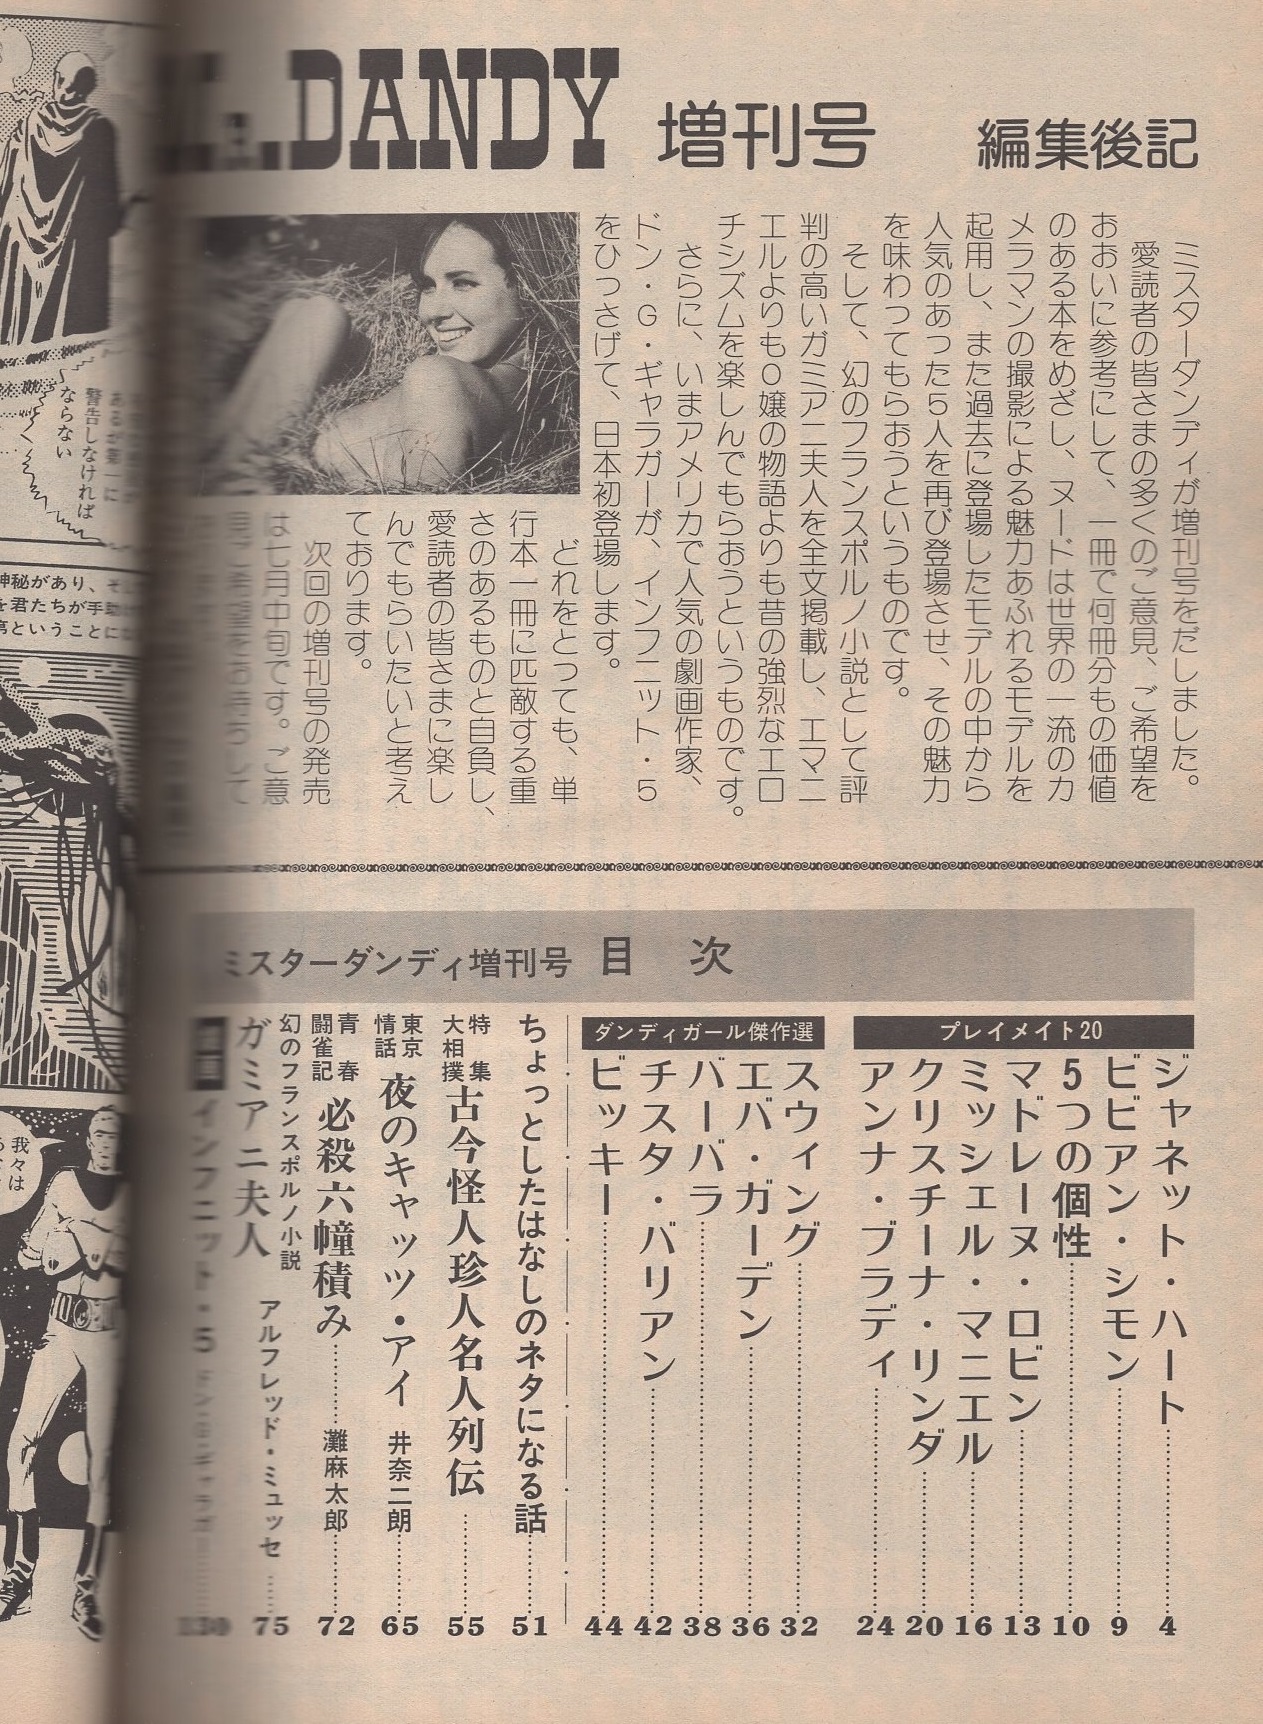 DANDY 増刊号 編集後記
ミスターダンディが増刊号をだしました。
愛読者の皆さまの多くのご意見、ご希望を
おおいに参考にして、一冊で何冊分もの価値
のある本をめざし、ヌードは世界の一流のカ
メラマンの撮影による魅力あふれるモデルを
起用し、また過去に登場したモデルの中から
人気のあった5人を再び登場させ、その魅力
を味わってもらおうというものです。
そして、幻のフランスポルノ小説として評
判の高いガミアニ夫人を全文掲載し、エマニ
エルよりもO嬢の物語よりも昔の強烈なエロ
チシズムを楽しんでもらおうというものです。
さらに、いまアメリカで人気の劇画作家、
ドン・G・ギャラガーが、インフニット・5
をひっさげて、日本初登場します。
どれをとっても、単
行本一冊に匹敵する重
さのあるものと自負し、
愛読者の皆さまに楽し
んでもらいたいと考え
ております。
次回の増刊号の発売
は七月中旬です。ご意
見ご希望をお待ちして
ミスターダンディ増刊号 目次
プレイメイト20
ジャネット・ハート 4
ビビアン・シモン 9
5つの個性 10
マドレーヌ・ロビン 13
ミッシェル・マニエル 16
クリスチーナ・リンダ 20
アンナ・ブラディ 24
ダンディガール傑作選
スウィング 32
エバ・ガーデン 36
バーバラ 38
チスタ・バリアン 42
ビッキー 44
ちょっとしたはなしのネタになる話 51
特集 大相撲 古今怪人珍人名人列伝 55
東京情話 夜のキャッツ・アイ 井奈二朗 65
青春闘雀記 必殺六幢積み 灘麻太郎 72
幻のフランスポルノ小説
ガミアニ夫人 アルフレッド・ミュッセ 75
インフニット・5 ドン・G・ギャラガー 130
警告しなければ
ならない
神秘があり、そ
を君たちが手助
ということにな
我々は